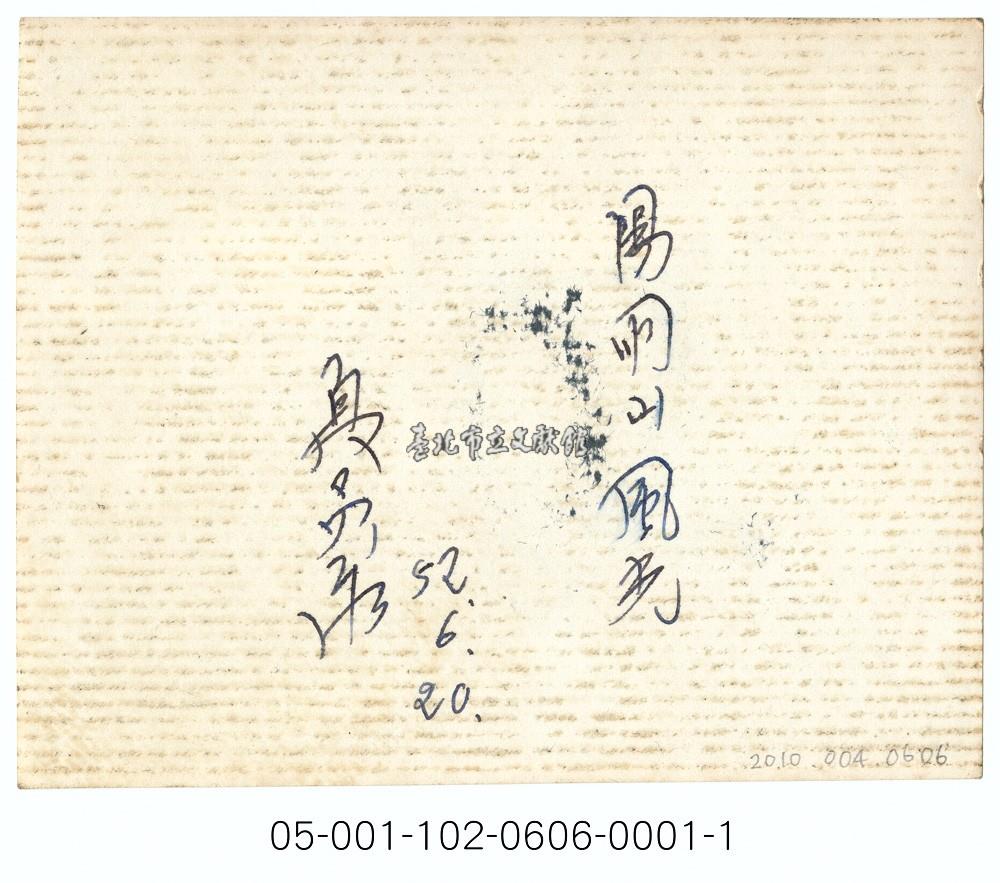 陽明山風光
52.
6.
20.
臺北市立文獻館
2010.004.0606
05-001-102-0606-0001-1